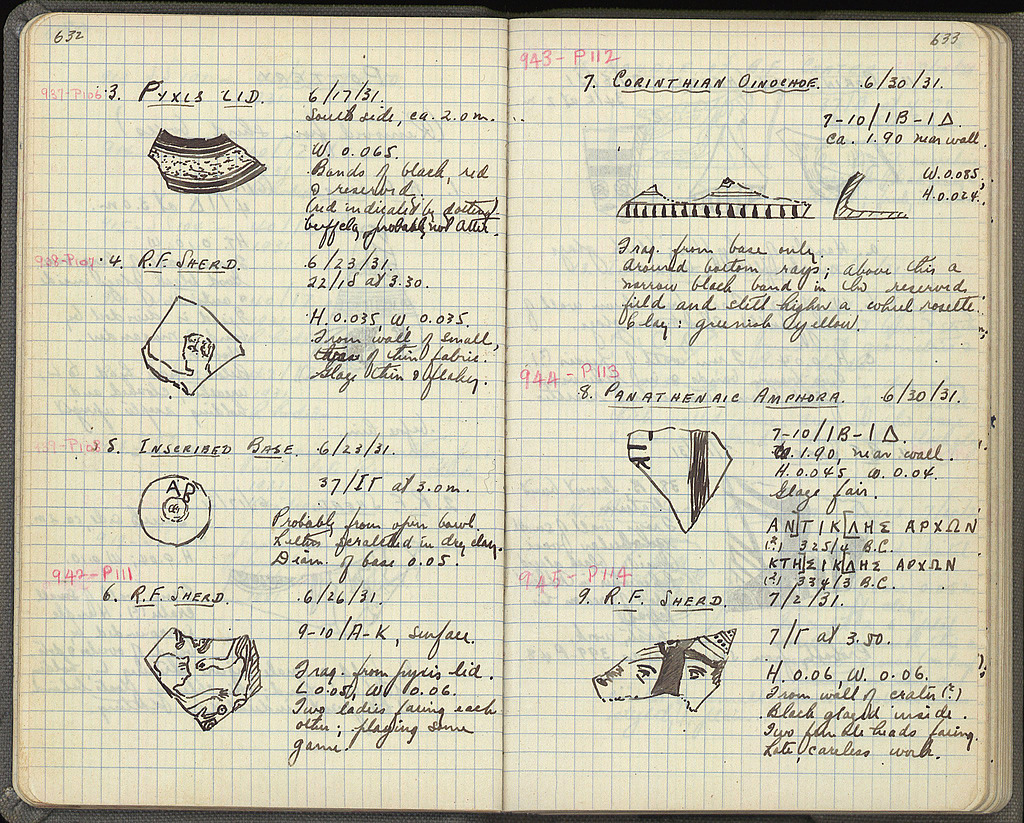 632
937-P106
3. PYXIS LID. 6/17/31.
South side, ca. 2.0 m.
W. 0.065.
Bands of black, red
& reserved.
(red indicated by dotting)
probably not Attic.
938-P107
4. R.F. SHERD. 6/23/31.
22/ at 3.30.
H. 0.035, W. 0.035.
From wall of small,
of thin fabric.
Glaze thin & flaky.
939-P108
5. INSCRIBED BASE. 6/23/31.
37/ΙΓ at 3.0 m.
AB
Probably from open bowl.
Letters scratched in dry clay.
Diam. of base 0.05.
942-P111
6. R.F. SHERD. 6/26/31.
9-10/A-K, surface.
Frag. from pyxis lid.
L 0.05, W. 0.06.
Two ladies facing each
other, playing some
game.
633
943-P112
7. CORINTHIAN OINOCHOE. 6/30/31.
7-10/IB-IΔ
ca. 1.90 near wall.
W. 0.085
H. 0.024.
Frag. from base only.
Around bottom rays; above this a
narrow black band in the reserved
field and still higher a wheel rosette.
Clay: greenish yellow.
944-P113
8. PANATHENAIC AMPHORA. 6/30/31.
7-10/IB-IΔ.
ca. 1.90, near wall.
H. 0.045 W. 0.04.
Glaze fair.
ΑΝ]ΤΙΚ[ΛΗΣ ΑΡΧΩΝ
(?) 325/4 B.C.
ΚΤΗ]ΣΙΚ[ΛΗΣ ΑΡΧΩΝ
(?) 334/3 B.C.
945-P114
9. R.F. SHERD. 7/2/31.
7/Γ at 3.50.
H. 0.06. W. 0.06.
From wall of crater (?)
Black glazed inside.
Two female heads facing.
Late, careless work.